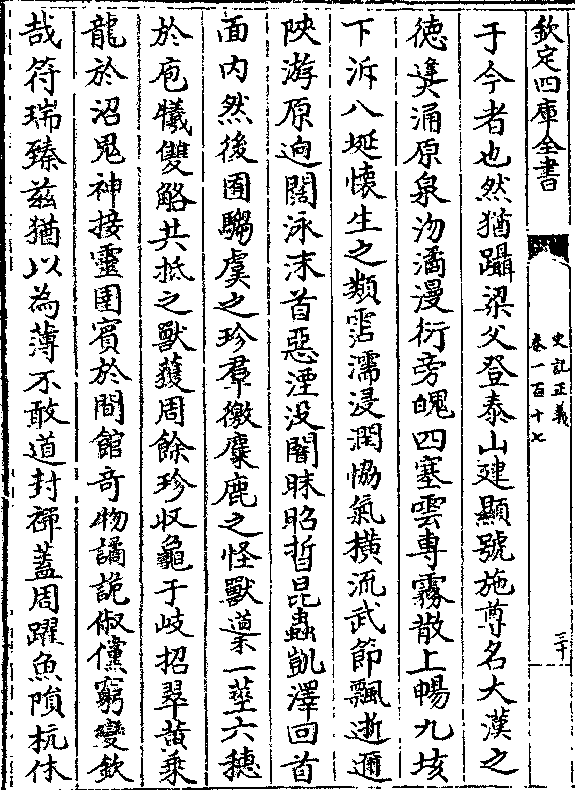 欽定四庫全書
史記正義
卷一百十七
三十
于今者也然猶躡梁父登泰山建顯號施尊名大漢之
徳㷼涌原泉沕潏漫衍旁魄四塞雲尃霧散上暢九垓
下泝八埏懷生之類霑濡浸潤協氣横流武節飄逝邇
陜游原逈闊泳沫首惡湮没闇昧昭晢昆蟲凱澤回首
面内然後囿騶虞之珍羣徼麋鹿之怪獸䆃一莖六穗
於庖犧雙觡共抵之獸獲周餘珍收龜于岐招翠黄乗
龍於沼鬼神接靈圉賓於閒館奇物譎詭俶儻窮變欽
哉符瑞臻兹猶以為薄不敢道封禪蓋周躍魚隕抗休